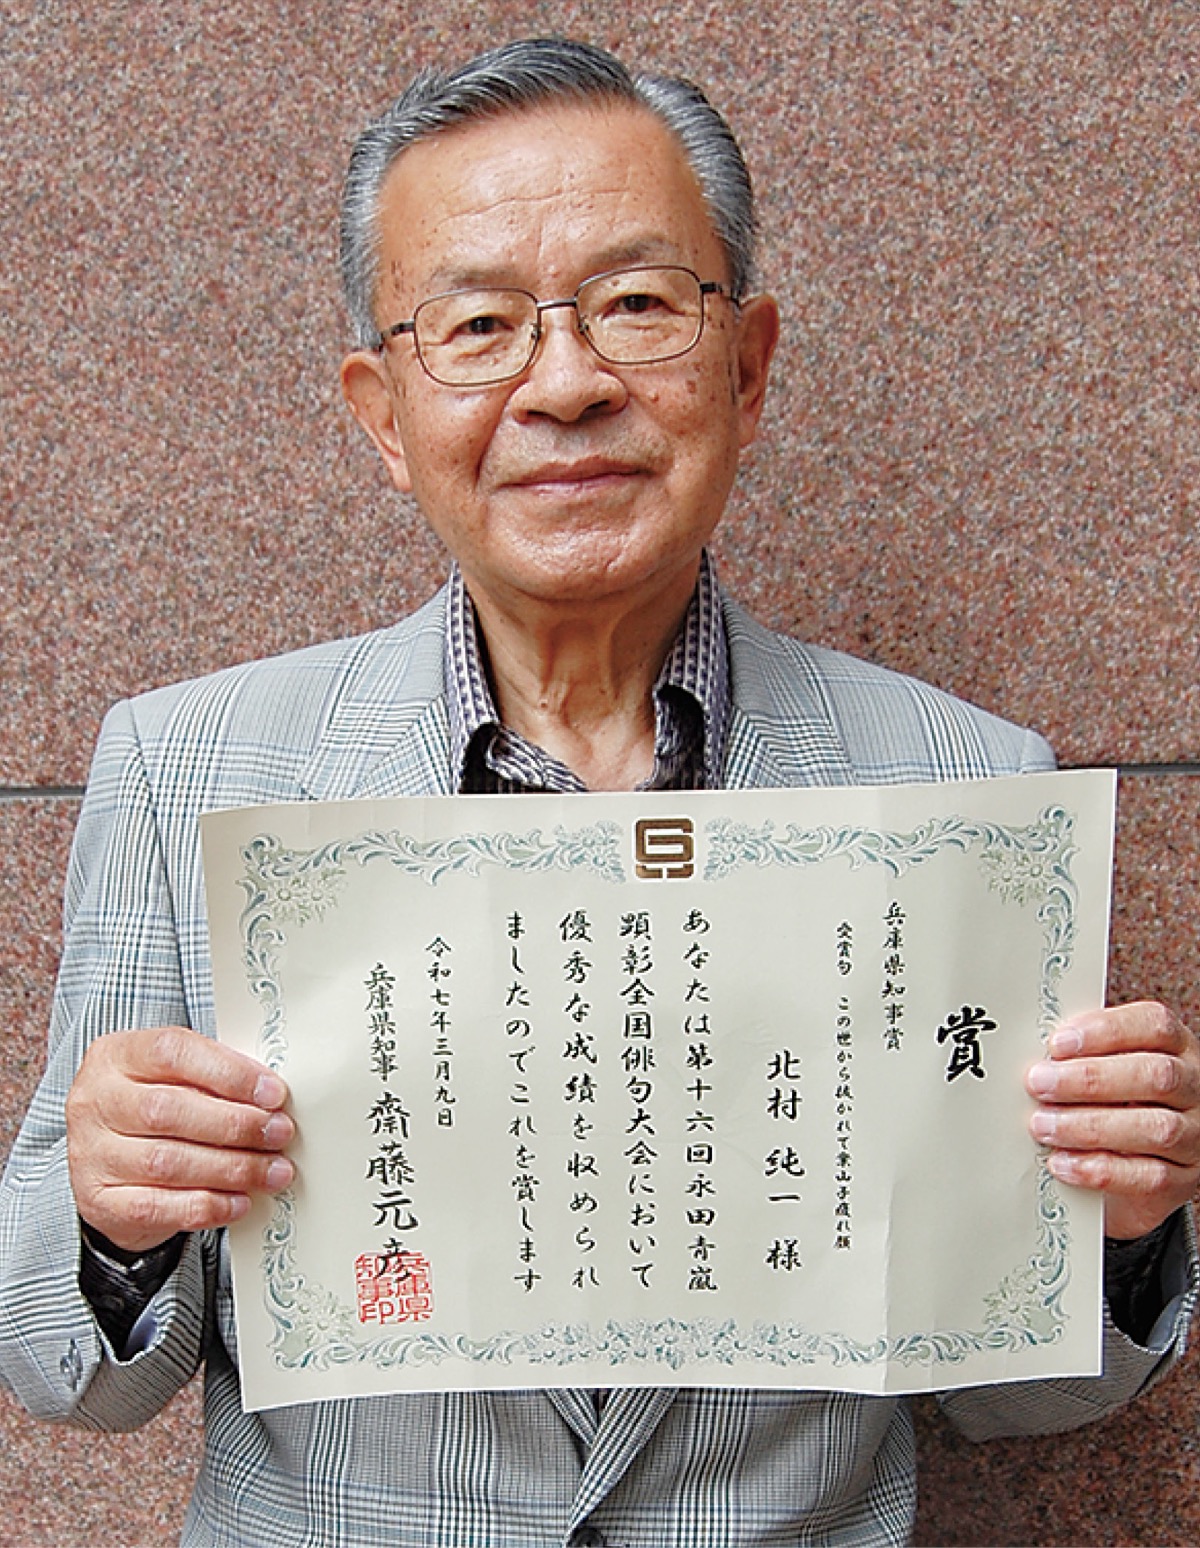 賞
兵庫県知事賞
受賞句 この世から抜かれて案山子疲れ顔
北村 純一 様
あなたは第十六回永田青嵐
顕彰全国俳句大会において
優秀な成績を収められ
ましたのでこれを賞します
令和七年三月九日
兵庫県知事 齋藤元彦
兵庫県
知事印